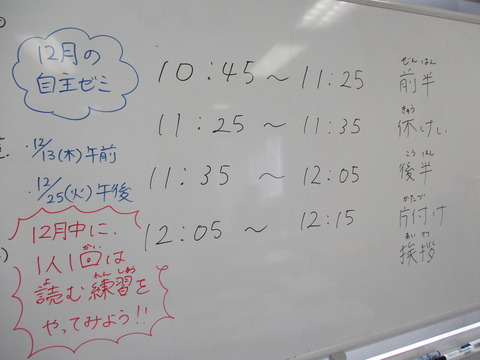 12月の
自主ゼミ
・12/13(木)午前
・12/25(火)午後
12月中に、
1人1回は
読む練習を
やってみよう!!
10:45～11:25 前半
11:25～11:35 休けい
11:35～12:05 後半
12:05～12:15 片付け
挨拶